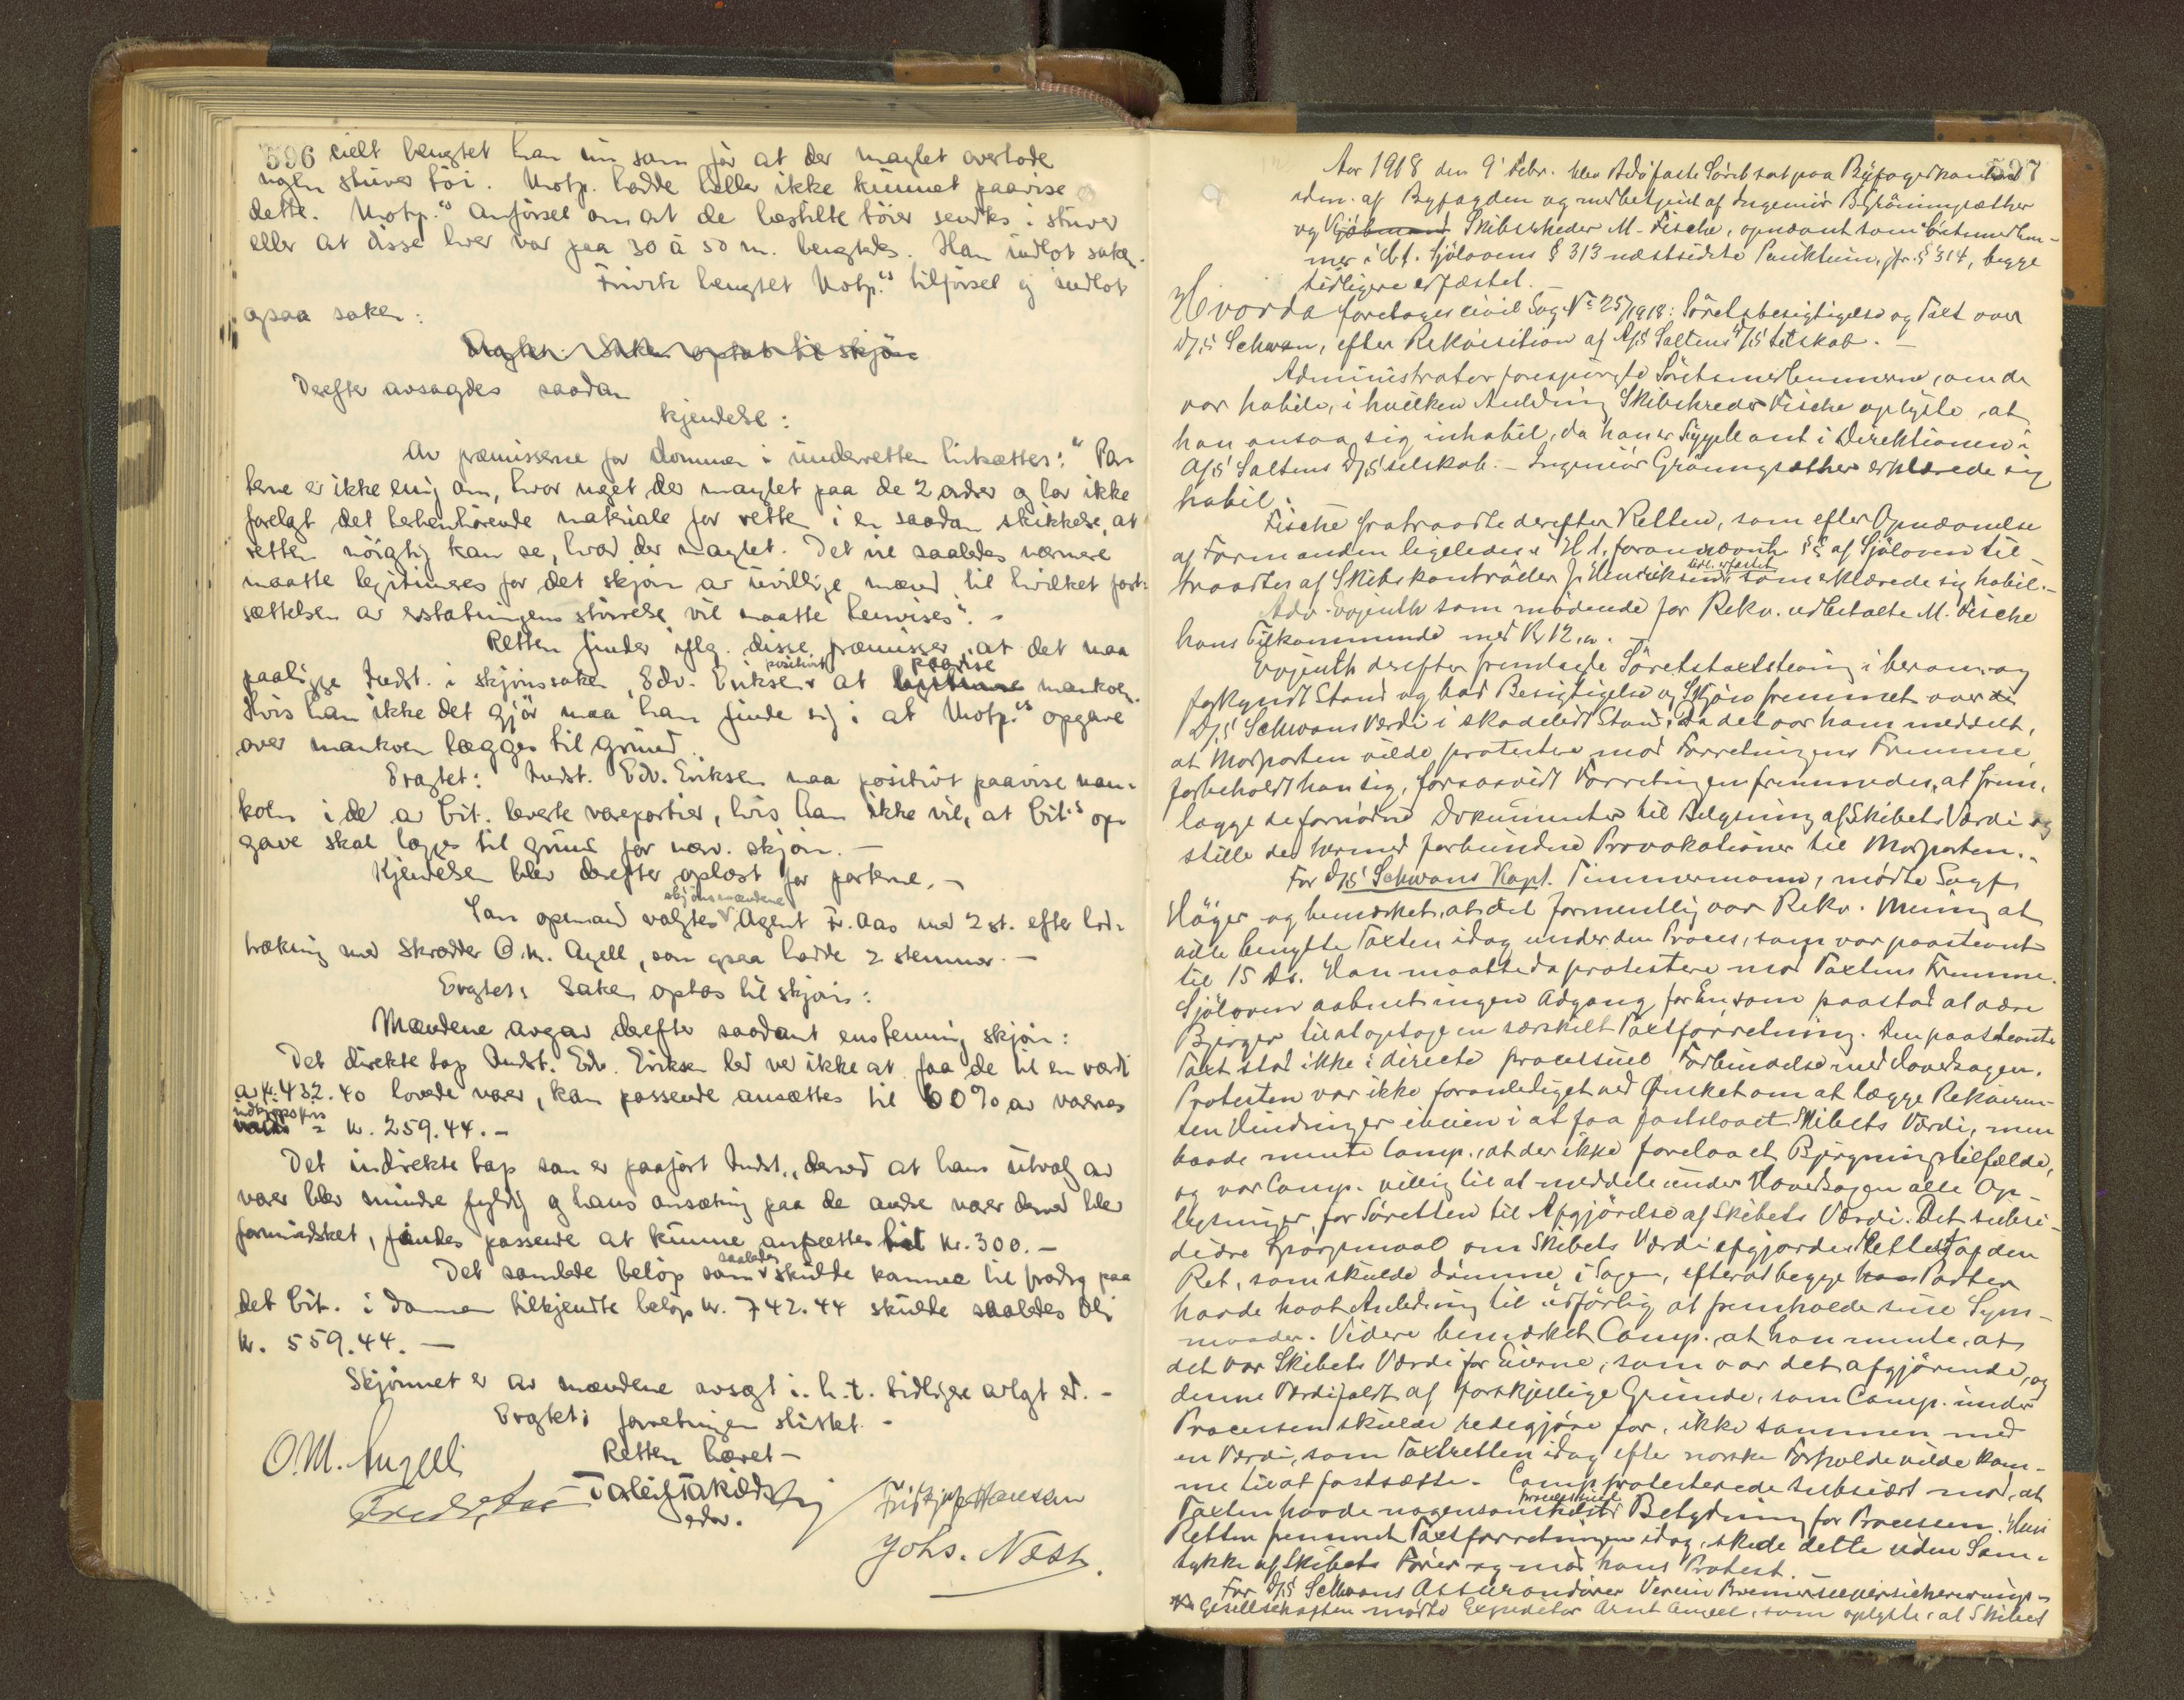 596
cielt benegtet han nu som før at der manglet overhode
nogen stuver tøi. Motp. hadde heller ikke kunnet paavise
dette. Motp.s anførsel om at de bestilte tøier sendtes i stuver
eller at disse hver var paa 30 à 50 m. benegtedes. Han indlot saken.
benegtet Motp.s tilførsel og indlot
ogsaa saken:
Avgtes: Saken optas til skjøn
Derefter avsagdes saadan
kjendelse:
Av præmisserne for dommen i underretten hitsættes: "Par
terne er ikke enig om, hvor meget der manglet paa de 2 ordrer og har ikke
forelagt det herhenhørende materiale for retten i en saadan skikkelse, at
retten nøiagtig kan se, hvad der manglet. Det vil saaledes nærmere
maatte legitimeres for det skjøn av uvillige mænd til hvilket fast-
sættelsen av erstatningens størrelse vil maatte henvises". -
Retten finder ifølg. disse præmisser, at det maa
paaligge Indst. i skjønssaken, Edv. Eriksen positivt at paavise mankoen.
Hvis han ikke det gjør maa han finde sig i at Motp.s opgave
over mankoen lægges til grund.
Eragtet: Indst. Edv. Eriksen maa positivt paavise man-
koen i de av Cit. leverte varepartier, hvis han ikke vil, at Cit.s op
gave skal lægges til grund for nærv. skjøn. -
Kjendelsen blev derefter oplæst for parterne. -
Som opmand valgtes skjønsmændene Agent Fr. Aas med 2 st. efter lod-
trækning med Skrædder O. M. Angell, som ogsaa hadde 2 stemmer. -
Eragtet: Saken optas til skjøn:
Mændene avgav derefter saadant enstemmig skjøn:
Det direkte tap Indst. Edv. Eriksen led ved ikke at faa de til en værdi
av kr. 432.40 lovede varer, kan passende ansættes til 60% av varenes
indkjøpspris = kr. 259.44. -
Det indirekte tap som er paaført Indst., derved at hans utvalg av
varer blev mindre fyldig og hans omsætning paa de andre varer derved blev
formindsket, findes passende at kunne ansættes til kr. 300. -
Det samlede beløp som saaledes skulde komme til fradrag paa
det Cit. i dommen tilkjendte beløp kr. 742.44 skulde saaledes bli
kr. 559.44. -
Skjønnet er av mændene avsagt i. h. t. tidligere avlagt ed. -
Eragtet: forretningen sluttet. -
Retten hævet -
O. M. Angell
Fredr. Aas
edv.
Fridtjof Hansen
Johs. Næss.
597
Aar 1918 den 9' Febr. blev Bodø faste Søret sat paa Byfogedkontoret
adm. af Byfogden og medbetjent af Ingeniør B. Grønningsæther
og Kjøbmand Skibsrheder M. Fische, opnævnt som Søretsmedlem-
mer i h. t. Sjølovens § 313 næstsidste Punktum, jfr. § 314, begge
tidligere edfæstet. -
Hvorda foretoges civil Sag No 25/1918: Søretsbesigtigelse og Taxt over
D/S Schwan, efter Rekvisition af A/S Saltens D/S selskab. -
Administrator forespurgte Søretsmedlemmerne, om de
var habile, i hvilken Anledning Skibsrheder Fische oplyste, at
han ansaa sig inhabil, da han er Suppleant i Direktionen i
A/S Saltens D/S selskab. - Ingeniør Grønningsæther erklærede sig
habil.
Fische fratraadte derefter Retten, som efter Opnævnelse
af Formanden ligeledes i H. t. forannævnte §§ af Sjøloven til-
traadtes af Skibskontrollør J. Hendriksen tidl. edfæstet som erklærede sig habil. -
Adv. Evjenth som mødende for Rekv. udbetalte M. Fische
hans Tilkommende med Kr 12.00. -
Evjenth derefter fremlagde Søretstaxtstævning i beram. og
forkyndt Stand og bad Besigtigelse og Skjøn fremmet over
D/S Schwans Værdi i skadelidt Stand. Da det var ham meddelt,
at Modparten vilde protestere mod Forretningens Fremme
forbeholdt han sig, forsaavidt Forretningen fremmedes, at frem-
lægge de fornødne Dokumenter til Belysning af Skibets Værdi og
stille de hermed forbundne Provokationer til Modparten. -
For D/S Schwans Kapt. Timmermann, mødte Sagf.
Høyer og bemærket, at det formentlig var Rekv. Mening at
ville benytte Taxten idag under den Proces, som var paastevnt
til 15 ds. Han maatte da protestere mod Taxtens Fremme.
Sjøloven aabnet ingen Adgang for En, som paastod at være
Bjerger til at optage en særskilt Taxtforretning. Den paastevnte
Taxt stod ikke i directe processuel Forbindelse med Hovedsagen.
Protesten var ikke foranlediget ved Ønsket om at lægge Rekvirenten
Hindringer iveien i at faa fastslaaet Skibets Værdi, men
baade mente Comp., at der ikke forelaa et Bjergningstilfælde,
og var Comp. villig til at meddele under Hovedsagen alle Op-
lysninger for Søretten til Afgjørelse af Skibets Værdi. Det subsi-
diære Spørgsmaal om Skibets Værdi afgjordes rettest af den
Ret, som skulde dømme i Sagen, efterat begge Parter
havde havt Anledning til udførlig at fremholde sine Syns-
maader. Videre bemærket Comp. at han mente, at
det var Skibets Værdi for Eierne, som var det afgjørende, og
denne Værdi faldt af forskjellige Grunde, som Comp. under
Processen skulde redegjøre for, ikke sammen med
en Værdi, som Taxtretten idag efter norske Forholde vilde kom-
me til at fastsætte. Comp. protesterede subsidiært mod, at
Taxten havde nogensomhelst processuel Betydning for Processen. Hvis
Retten fremmet Taxtforretningen idag, skede dette uden Sam-
tykke af Skibets Fører og mod hans Protest. -
For D/S Schwans Assurandører Verein Bremer Seeversicherungs-
Gesellschaften mødte Expeditør Arnt Angell, som oplyste, at Skibet